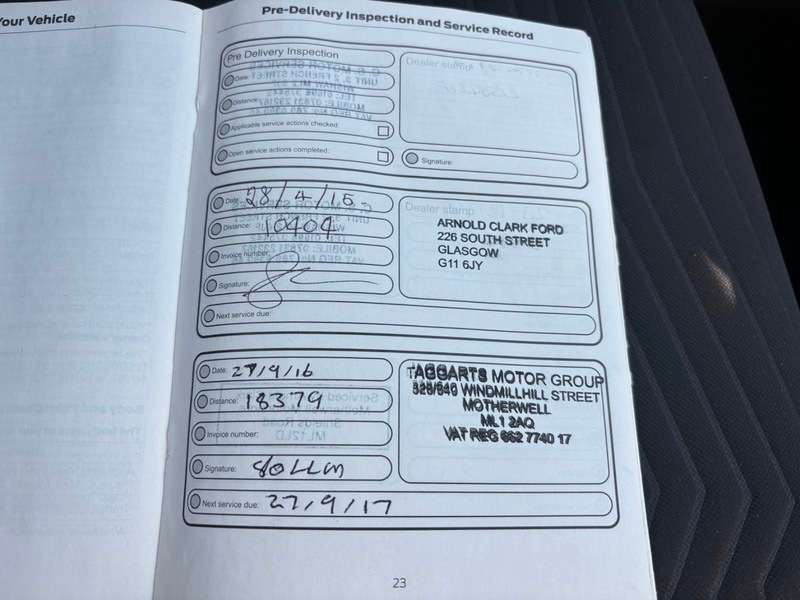 Your Vehicle
Pre-Delivery Inspection and Service Record
Pre Delivery Inspection
Date:
Distance:
Applicable service actions checked:
Open service actions completed:
Dealer stamp
Signature:
Date: 28/4/15
Distance: 10404
Invoice number:
Signature:
Next service due:
Dealer stamp
ARNOLD CLARK FORD
226 SOUTH STREET
GLASGOW
G11 6JY
Date: 27/9/16
Distance: 18379
Invoice number:
Signature:
Next service due: 27/9/17
TAGGARTS MOTOR GROUP
WINDMILLHILL STREET
MOTHERWELL
ML1 2AQ
VAT REG 662 7740 17
23